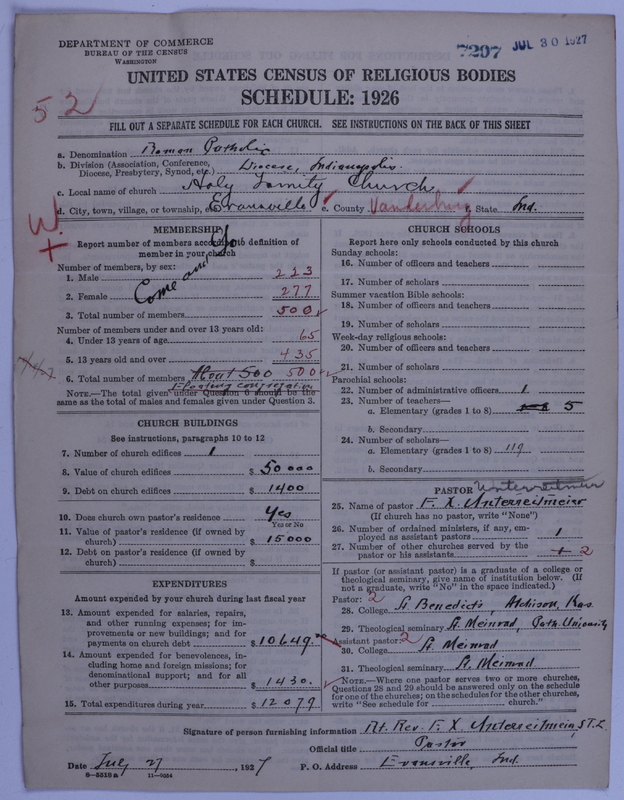 DEPARTMENT OF COMMERCE
BUREAU OF THE CENSUS
WASHINGTON
7297 JUL 30 1927
UNITED STATES CENSUS OF RELIGIOUS BODIES
SCHEDULE: 1926
52
FILL OUT A SEPARATE SCHEDULE FOR EACH CHURCH. SEE INSTRUCTIONS ON THE BACK OF THIS SHEET
a. Denomination Roman Catholic
b. Division (Association, Conference, Diocese, Presbytery, Synod, etc.) Diocese, Indianapolis
c. Local name of church Holy Family Church
d. City, town, village, or township, etc. Evansville e. County Vanderburg State Ind.
W.
+
MEMBERSHIP
Report number of members according to definition of
member in your church
Come and Go
Number of members, by sex:
1. Male 223
2. Female 277
3. Total number of members 500
Number of members under and over 13 years old:
4. Under 13 years of age 65
5. 13 years old and over 435
6. Total number of members About 500 500
Floating congregation
NOTE.—The total given under Question 6 should be the
same as the total of males and females given under Question 3.
CHURCH BUILDINGS
See instructions, paragraphs 10 to 12
7. Number of church edifices 1
8. Value of church edifices $ 50000
9. Debt on church edifices $ 1400
10. Does church own pastor's residence Yes
Yes or No
11. Value of pastor's residence (if owned by
church) $ 15000
12. Debt on pastor's residence (if owned by
church) $
EXPENDITURES
Amount expended by your church during last fiscal year
13. Amount expended for salaries, repairs,
and other running expenses; for im-
provements or new buildings; and for
payments on church debt $ 10649.00
14. Amount expended for benevolences, in-
cluding home and foreign missions; for
denominational support; and for all
other purposes $ 1430.
15. Total expenditures during year $ 12079
CHURCH SCHOOLS
Report here only schools conducted by this church
Sunday schools:
16. Number of officers and teachers
17. Number of scholars
Summer vacation Bible schools:
18. Number of officers and teachers
19. Number of scholars
Week-day religious schools:
20. Number of officers and teachers
21. Number of scholars
Parochial schools:
22. Number of administrative officers 1
23. Number of teachers—
a. Elementary (grades 1 to 8) 5
b. Secondary
24. Number of scholars—
a. Elementary (grades 1 to 8) 119
b. Secondary
PASTOR Unterreitmeier
25. Name of pastor F. X. Unterreitmeier
(If church has no pastor, write "None")
26. Number of ordained ministers, if any, em-
ployed as assistant pastors 1
27. Number of other churches served by the
pastor or his assistants 1 2
If pastor (or assistant pastor) is a graduate of a college or
theological seminary, give name of institution below. (If
not a graduate, write "No" in the space indicated.)
Pastor: 2
28. College St. Benedicts, Atchison, Kas.
29. Theological seminary St. Meinrad, Cath. University
Assistant pastor: 2
30. College St. Meinrad
31. Theological seminary St. Meinrad
NOTE.—Where one pastor serves two or more churches,
Questions 28 and 29 should be answered only on the schedule
for one of the churches; on the schedules for the other churches,
write "See schedule for church."
Signature of person furnishing information Rt. Rev. F. X. Unterreitmeier, S.T.L.
Official title Pastor
Date July 27, 1927 P. O. Address Evansville, Ind.
8-5510 a 11-9284